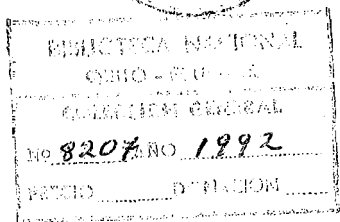 BIBLIOTECA NACIONAL
QUITO -
COLECCION GENERAL
Nº 8207 AÑO 1992
PRECIO DONACION